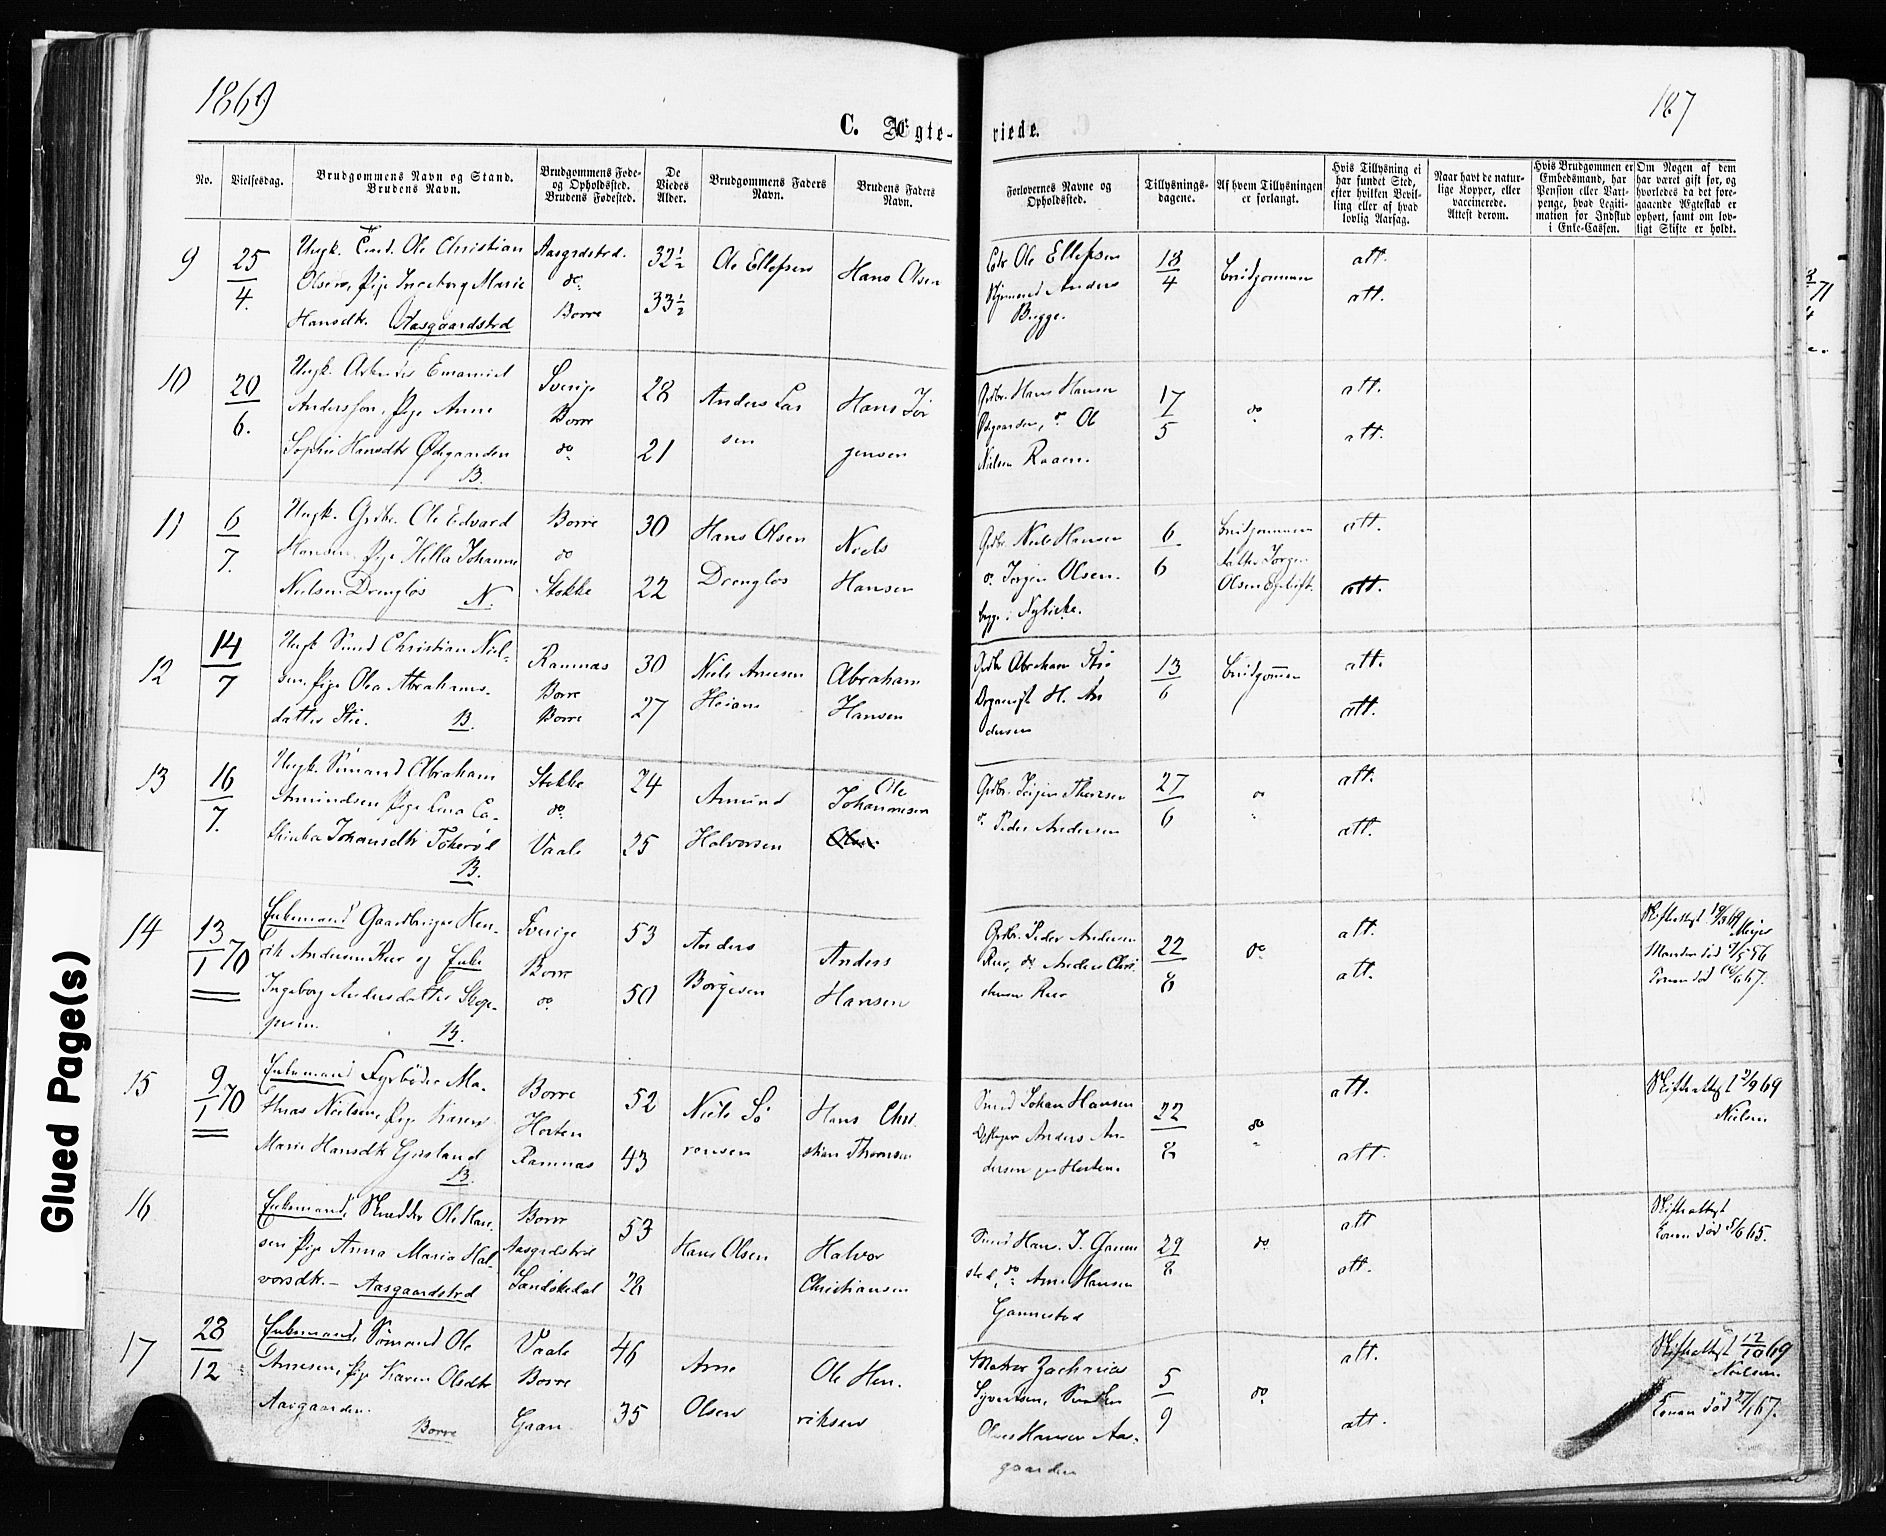 1869
187
C. Ægte-
viede.
No.
Vielsesdag.
Brudgommens Navn og Stand.
Brudens Navn.
Brudgommens Føde-
og Opholdssted.
Brudens Fødested.
De
Viedes
Alder.
Brudgommens Faders
Navn.
Brudens Faders
Navn.
Forlovernes Navne og
Opholdssted.
Tillysnings-
dagene.
Af hvem Tillysningen
er forlangt.
Hvis Tillysning ei
har fundet Sted,
efter hvilken Bevil-
ling eller af hvad
lovlig Aarsag.
Naar havt de natur-
lige Kopper, eller
vaccinerede.
Attest derom.
Hvis Brudgommen er
Embedsmand, har
Pension eller Vart-
penge, hvad Legiti-
mation for Indskud
i Enke-Cassen.
Om Nogen af dem
har været gift før, og
hvorledes da det fore-
gaaende Ægteskab er
ophørt, samt om lov-
ligt Skifte er holdt.
9
25
4.
Ungk. Ole Christian
Olsen, Pige Ingeborg Marie
Hansdtr. Aasgaardstrd
Aasgrdstrd.
do
Borre
32½
33½
Ole Ellefsen
Hans Olsen
Ole Ellefsen
Anders
Bugge.
18
4
Brudgommen
att.
att.
10
20
6.
Ungk. Emanuel
Andersson, Pige Anne
Sophie Hansdtr Ødegaarden
B.
Sverige
Borre
do
28
21
Anders Lar
sen
Hans Jør
gensen
Grdbr. Hans Hansen
Ødegaarden, Ole
Nielsen Raaen.
17
5
do
att.
att.
11
6
7.
Ungk. Grdbr. Ole Edvard
Hansen, Pige Hella Johanne
Nielsen Drengløs N.
Borre
do
Stokke
30
22
Hans Olsen
Drengløs
Niels
Hansen
Grdbr. Niels Hansen
do. Jørgen Olsen.
6
6
Brudgommen
Jørgen
Olsen
att.
att.
12
14
7
Ungk Christian Niel-
sen, Pige Olea Abrahams-
datter Stie. B.
Ramnæs
Borre
Borre
30
27
Niels Arnesen
Abraham
Hansen
Grdbr Abraham Stie
H. An
dersen
13
6
Brudgommen
att.
att.
13
16
7.
Ungk. Sømand Abraham
Amundsen Pige Lena Ca-
Johansdtr
B.
Stokke
do.
Vaale
24
25
Amund
Halvorsen
Ole
Johannesen
Olsen
Grdbr. Jørgen Thoresen
do. Peder Andersen
27
6
do
att.
att.
14
13
1 70
Enkemand Gaardbruger Hen-
rik Andersen Rør og Enke
Ingeborg Andersdatter Skop-
pum. B.
Sverige
Borre
do
53
50
Anders
Børgesen
Anders
Hansen
Grdbr. Peder Andersen
Rør, do. Anders Chri
stensen Rør
22
8
do
att.
att.
Skifteattest
Manden død 56
Konen død 67.
15
9
1 70
Enkemand Fyrbøder Ma-
thias Nielsen, Pige Karen
Marie Hansdtr
B.
Borre
Horten
Ramnæs
52
43
Niels Sø
rensen
Hans Chri
stian Thomsen
Smed Johan Hansen
Anders An-
dersen Horten.
22
8
do
att.
att.
Skifteattest 69
Nielsen
16
Enkemand, Skrædder Ole Han-
sen Pige Anna Maria Hal-
vorsdtr.- Aasgaardstrd
Borre
Aasgrdstrd
Sandskedal
53
28
Hans Olsen
Halvor
Christiansen
Smed Hans J. Ganne
stad, do Arne Hansen
Gannestad
29
8
do
att
att.
Skifteattest
Konen død 65.
17
28
12
Enkemand, Sømand Ole
Arnesen, Pige Karen Olsdtr
Aasgaarden.
Borre
Vaale
Borre
46
35
Arne
Olsen
Ole Hen-
riksen
Matros Zacharias
Syvertsen,
Hansen Aas-
gaarden
5
9
do
att.
att.
Skifteattest 12/10 69
Nielsen.
Konen død 67.
Glued Page(s)